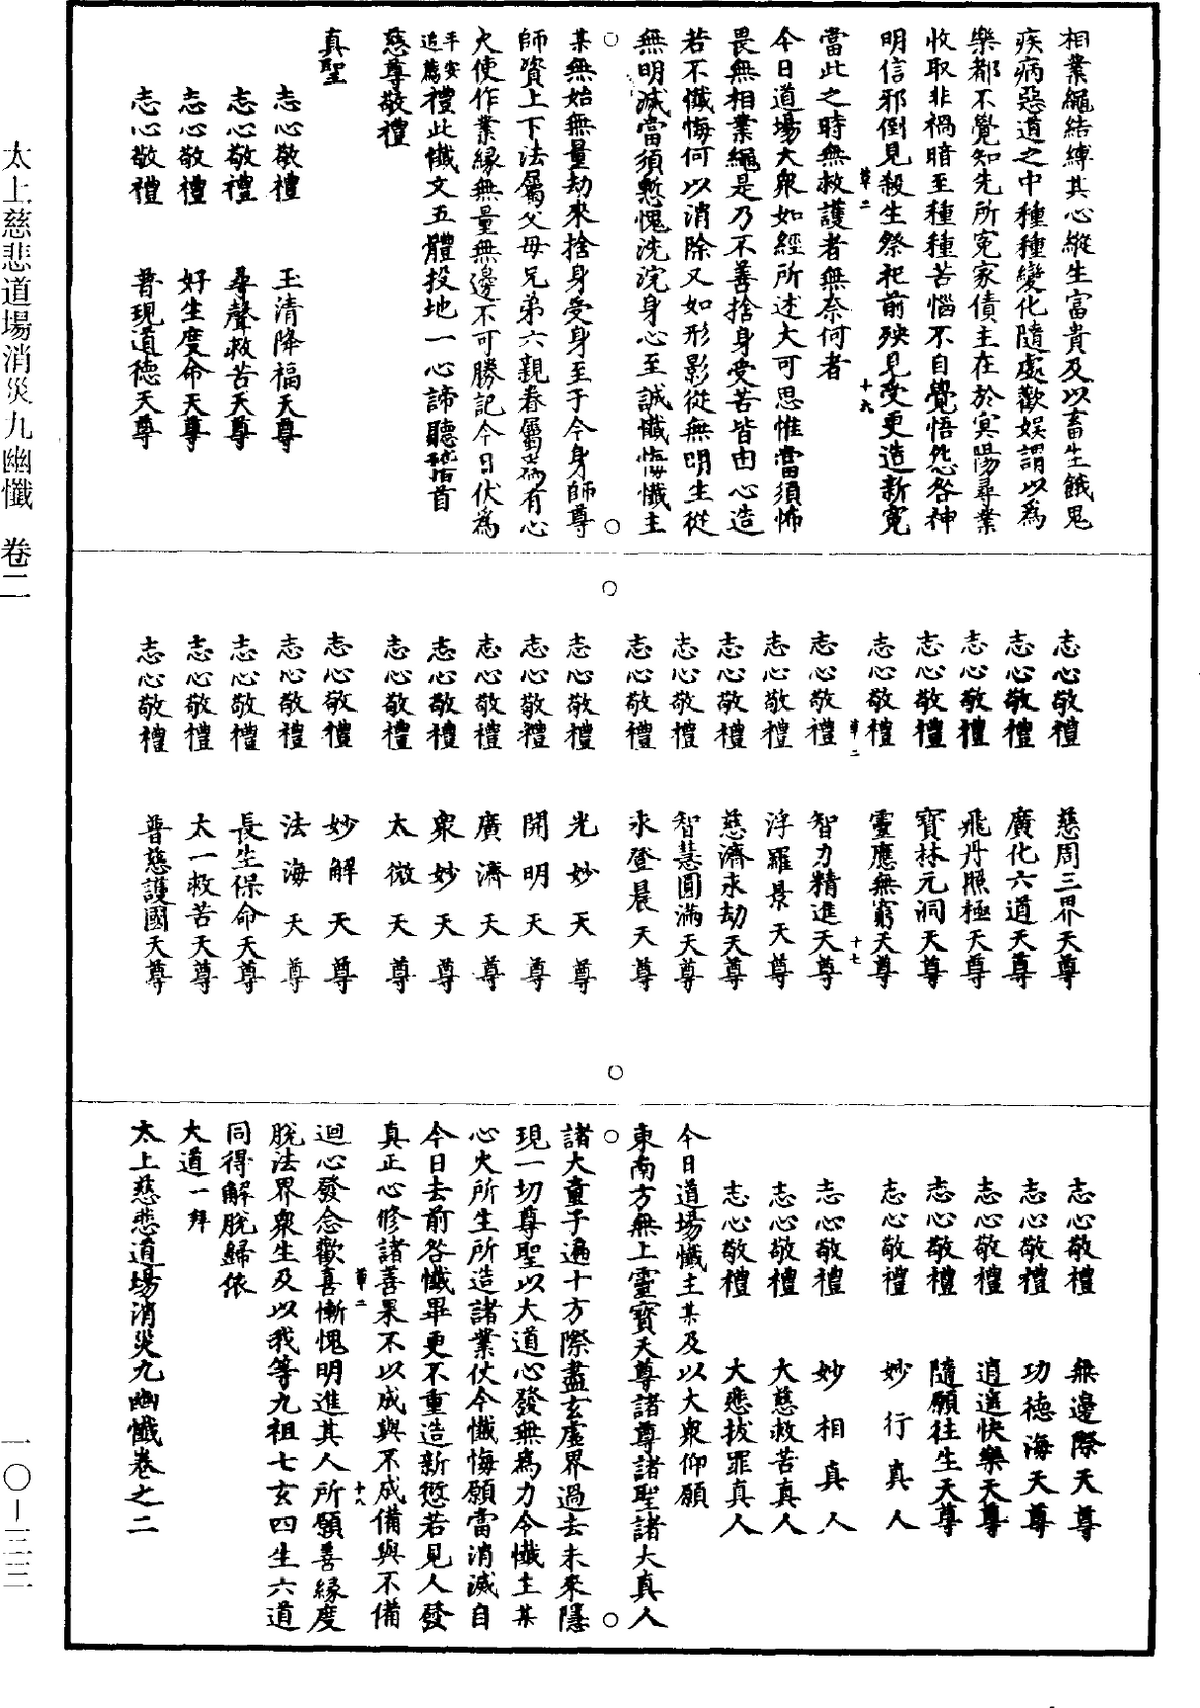 相業繩結縛其心縱生富貴及以畜生餓鬼
疾病惡道之中種種變化隨處歡娛謂以爲
樂都不覺知先所寃家債主在於冥陽尋業
收取非禍暗至種種苦惱不自覺悟怨咎神
明信邪倒見殺生祭祀前殃見受更造新寃
草二 十六
當此之時無救護者無奈何者
今日道場大衆如經所述大可思惟當須怖
畏無相業繩是乃不善捨身受苦皆由心造
若不懺悔何以消除又如形影從無明生從
無明滅當須慙愧洗浣身心至誠懺悔懺主
某無始無量劫來捨身受身至于今身師尊
師資上下法屬父母兄弟六親眷屬或有心
火使作業緣無量無邊不可勝記今日伏爲
平安追薦禮此懺文五體投地一心諦聽稽首
慈尊敬禮
真聖
志心敬禮 玉清降福天尊
志心敬禮 尋聲救苦天尊
志心敬禮 好生度命天尊
志心敬禮 普現道德天尊
志心敬禮 慈周三界天尊
志心敬禮 廣化六道天尊
志心敬禮 飛丹照極天尊
志心敬禮 寶林元洞天尊
志心敬禮 靈應無窮天尊
草二 十七
志心敬禮 智力精進天尊
志心敬禮 浮羅景天尊
志心敬禮 慈濟永劫天尊
志心敬禮 智慧圓滿天尊
志心敬禮 永登晨天尊
志心敬禮 光妙天尊
志心敬禮 開明天尊
志心敬禮 廣濟天尊
志心敬禮 衆妙天尊
志心敬禮 太微天尊
志心敬禮 妙解天尊
志心敬禮 法海天尊
志心敬禮 長生保命天尊
志心敬禮 太一救苦天尊
志心敬禮 普慈護國天尊
志心敬禮 無邊際天尊
志心敬禮 功德海天尊
志心敬禮 逍遙快樂天尊
志心敬禮 隨願往生天尊
志心敬禮 妙行真人
志心敬禮 妙相真人
志心敬禮 大慈救苦真人
志心敬禮 大悲拔罪真人
今日道場懺主某及以大衆仰願
東南方無上靈寶天尊諸尊諸聖諸大真人
諸大童子遍十方際盡玄虛界過去未來隱
現一切尊聖以大道心發無爲力令懺主某
心火所生所造諸業仗今懺悔願當消滅自
今日去前咎懺畢更不重造新愆若見人發
真正心修諸善果不以成與不成備與不備
草二 十八
迴心發念歡喜慚愧明進其人所願善緣度
脫法界衆生及以我等九祖七玄四生六道
同得解脫歸依
大道一拜
太上慈悲道場消災九幽懺卷之二
太上慈悲道場消災九幽懺 卷二
一〇－三三